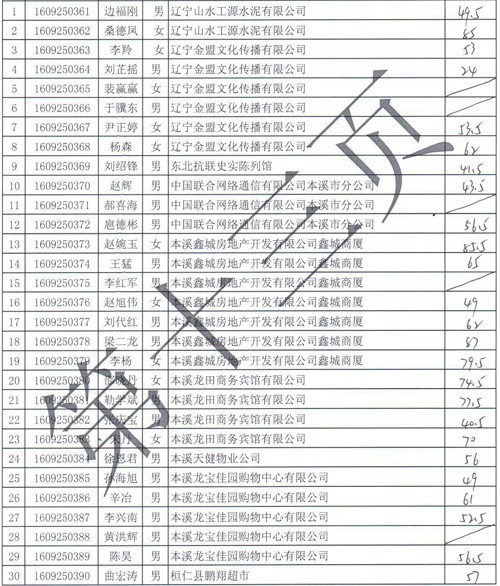 1 1609250361 边福刚 男 辽宁山水工源水泥有限公司 49.5
2 1609250362 桑德凤 女 辽宁山水工源水泥有限公司 85
3 1609250363 李羚 女 辽宁金盟文化传播有限公司 53
4 1609250364 刘芷摇 男 辽宁金盟文化传播有限公司 24
5 1609250365 裴赢赢 女 辽宁金盟文化传播有限公司
6 1609250366 于骥东 男 辽宁金盟文化传播有限公司
7 1609250367 尹正婷 女 辽宁金盟文化传播有限公司 53.5
8 1609250368 杨森 女 辽宁金盟文化传播有限公司 62
9 1609250369 刘绍锋 男 东北抗联史实陈列馆 41.5
10 1609250370 赵辉 男 中国联合网络通信有限公司本溪市分公司 43.5
11 1609250371 郝喜海 男 中国联合网络通信有限公司本溪市分公司
12 1609250372 扈德彬 男 中国联合网络通信有限公司本溪市分公司 56.5
13 1609250373 赵婉玉 女 本溪鑫城房地产开发有限公司鑫城商厦 85.5
14 1609250374 王猛 男 本溪鑫城房地产开发有限公司鑫城商厦 65
15 1609250375 李红军 男 本溪鑫城房地产开发有限公司鑫城商厦
16 1609250376 赵旭伟 女 本溪鑫城房地产开发有限公司鑫城商厦 49
17 1609250377 刘代红 男 本溪鑫城房地产开发有限公司鑫城商厦 62
18 1609250378 梁二龙 男 本溪鑫城房地产开发有限公司鑫城商厦 87
19 1609250379 李杨 女 本溪鑫城房地产开发有限公司鑫城商厦 79.5
20 1609250380 晓丹 女 本溪龙田商务宾馆有限公司 74.5
21 1609250381 勒学斌 男 本溪龙田商务宾馆有限公司 77.5
22 1609250382 张庆宝 男 本溪龙田商务宾馆有限公司 40.5
23 1609250383 女 本溪龙田商务宾馆有限公司 70
24 1609250384 徐恩君 男 本溪天健物业公司 56
25 1609250385 孙海旭 男 本溪龙宝佳园购物中心有限公司 49
26 1609250386 辛冶 男 本溪龙宝佳园购物中心有限公司 61
27 1609250387 李兴南 男 本溪龙宝佳园购物中心有限公司 52.5
28 1609250388 黄洪辉 男 本溪龙宝佳园购物中心有限公司
29 1609250389 陈昊 男 本溪龙宝佳园购物中心有限公司 56.5
30 1609250390 曲宏涛 男 桓仁县鹏翔超市 57
第十三页